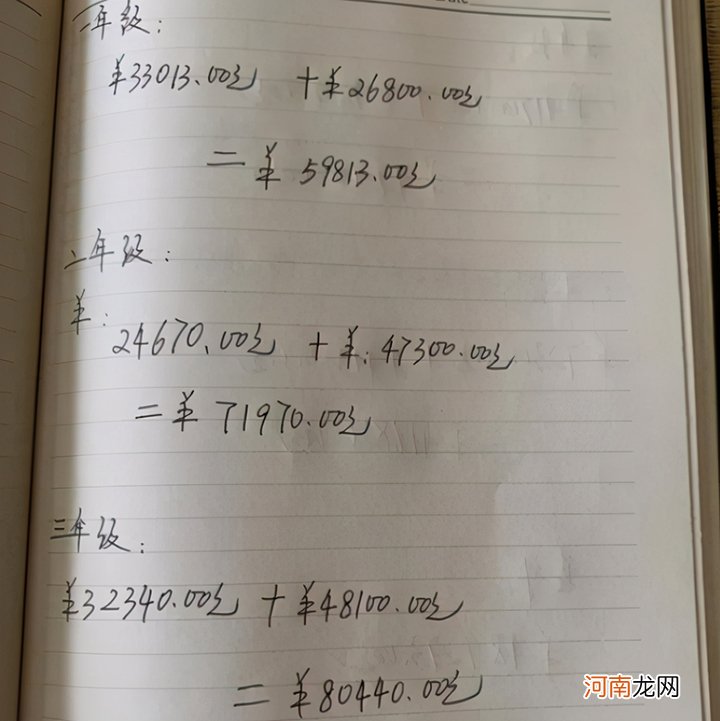 年级:
¥33013.00元 +¥26800.00元
=¥ 59813.00元
二年级:
¥:
24670.00元 +¥:47300.00元
=¥ 71970.00元
三年级:
¥32340.00元 +¥48100.00元
=¥80440.00元
河南龙网